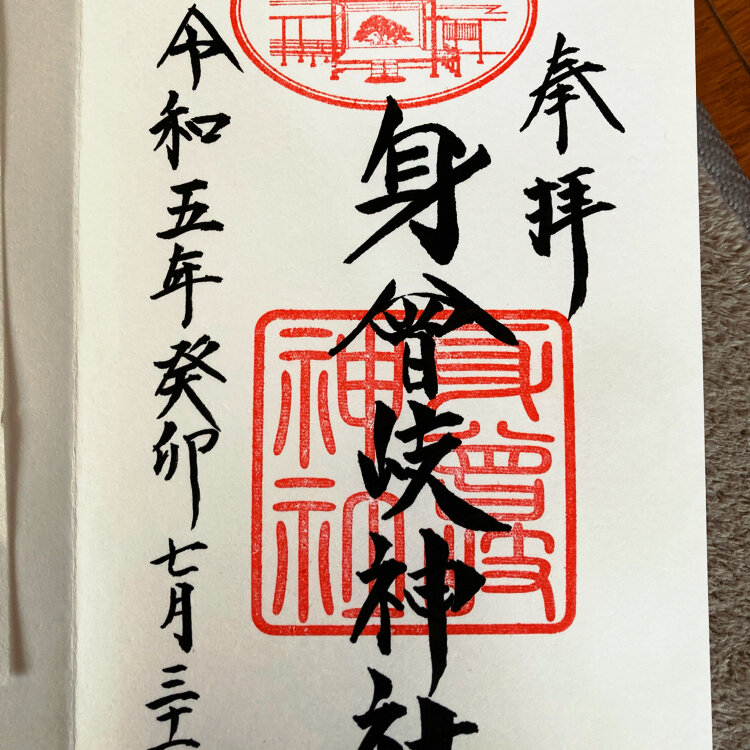 奉拝
身曾岐神社
身曾岐
神社
令和五年癸卯七月三十